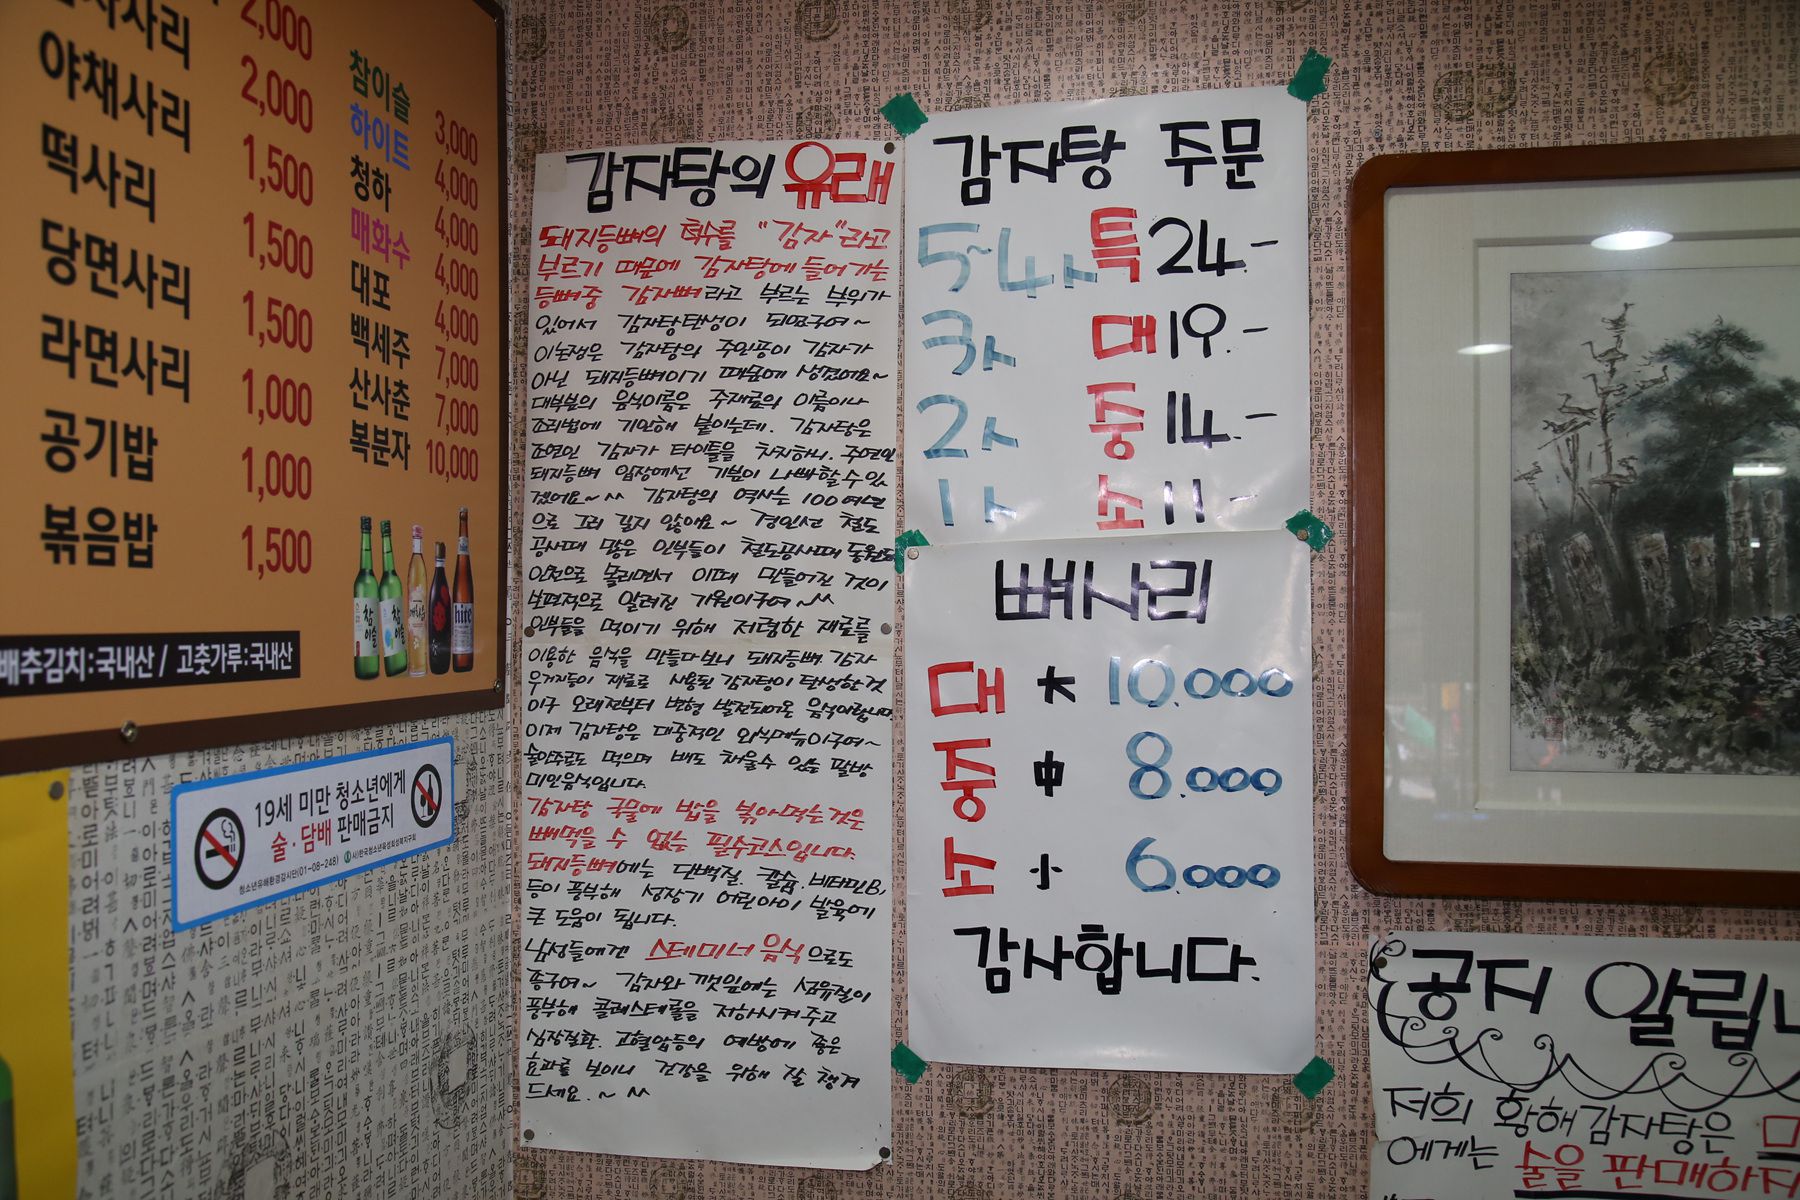 사리 2,000
야채사리 2,000
떡사리 1,500
당면사리 1,500
라면사리 1,500
공기밥 1,000
볶음밥 1,000
1,500
참이슬 3,000
하이트 4,000
청하 4,000
매화수 4,000
대포 4,000
백세주 7,000
산사춘 7,000
복분자 10,000
참이슬
hite
배추김치:국내산 / 고춧가루:국내산
19세 미만 청소년에게
술·담배 판매금지
청소년유해환경감시단(01-08-248) 사)한국청소년육성회성북지구회
감자탕의 유래
돼지등뼈의 척수를 "감자"라고
부르기 때문에 감자탕에 들어가는
등뼈중 감자뼈라고 부르는 부위가
있어서 감자탕탄생이 되었구여~
이논쟁은 감자탕의 주인공이 감자가
아닌 돼지등뼈이기 때문에 생겼어요~
대부분의 음식이름은 주재료의 이름이나
조리법에 기인해 붙이는데. 감자탕은
조연인 감자가 타이틀을 차지하니. 주연인
돼지등뼈 입장에선 기분이 나빠할수있
겠어요~^^ 감자탕의 역사는 100여년
으로 그리 길지 않아요~ 경인선 철도
공사때 많은 인부들이 철도공사때 동원되
인천으로 몰리면서 이때 만들어진 것이
보편적으로 알려진 기원이구여~^^
인부들을 먹이기 위해 저렴한 재료를
이용한 음식을 만들다보니 돼지등뼈. 감자
우거지등이 재료로 사용된 감자탕이 탄생한것
이구 오래전부터 변형 발전되어온 음식이랍니다
이제 감자탕은 대중적인 외식메뉴이구여~
술안주로도 먹으며 배도 채울수 있는 팔방
미인음식입니다.
감자탕 국물에 밥을 볶아먹는것은
빼먹을 수 없는 필수코스입니다.
돼지등뼈에는 단백질. 칼슘. 비타민B,
등이 풍부해 성장기 어린아이 발육에
큰 도움이 됩니다.
남성들에겐 스테미너 음식으로도
좋구여~ 감자와 깻잎에는 섬유질이
풍부해 콜레스테롤을 저하시켜주고
심장질환. 고혈압등의 예방에 좋은
효과를 보이니 건강을 위해 잘 챙겨
드세요.~^^
감자탕 주문
5~4人 특 24.-
3人 대 19.-
2人 중 14.-
1人 소 11-
뼈사리
대 大 10.000
중 中 8.000
소 小 6.000
감사합니다.
공지 알립니
저희 황해감자탕은
에게는 술을 판매하지